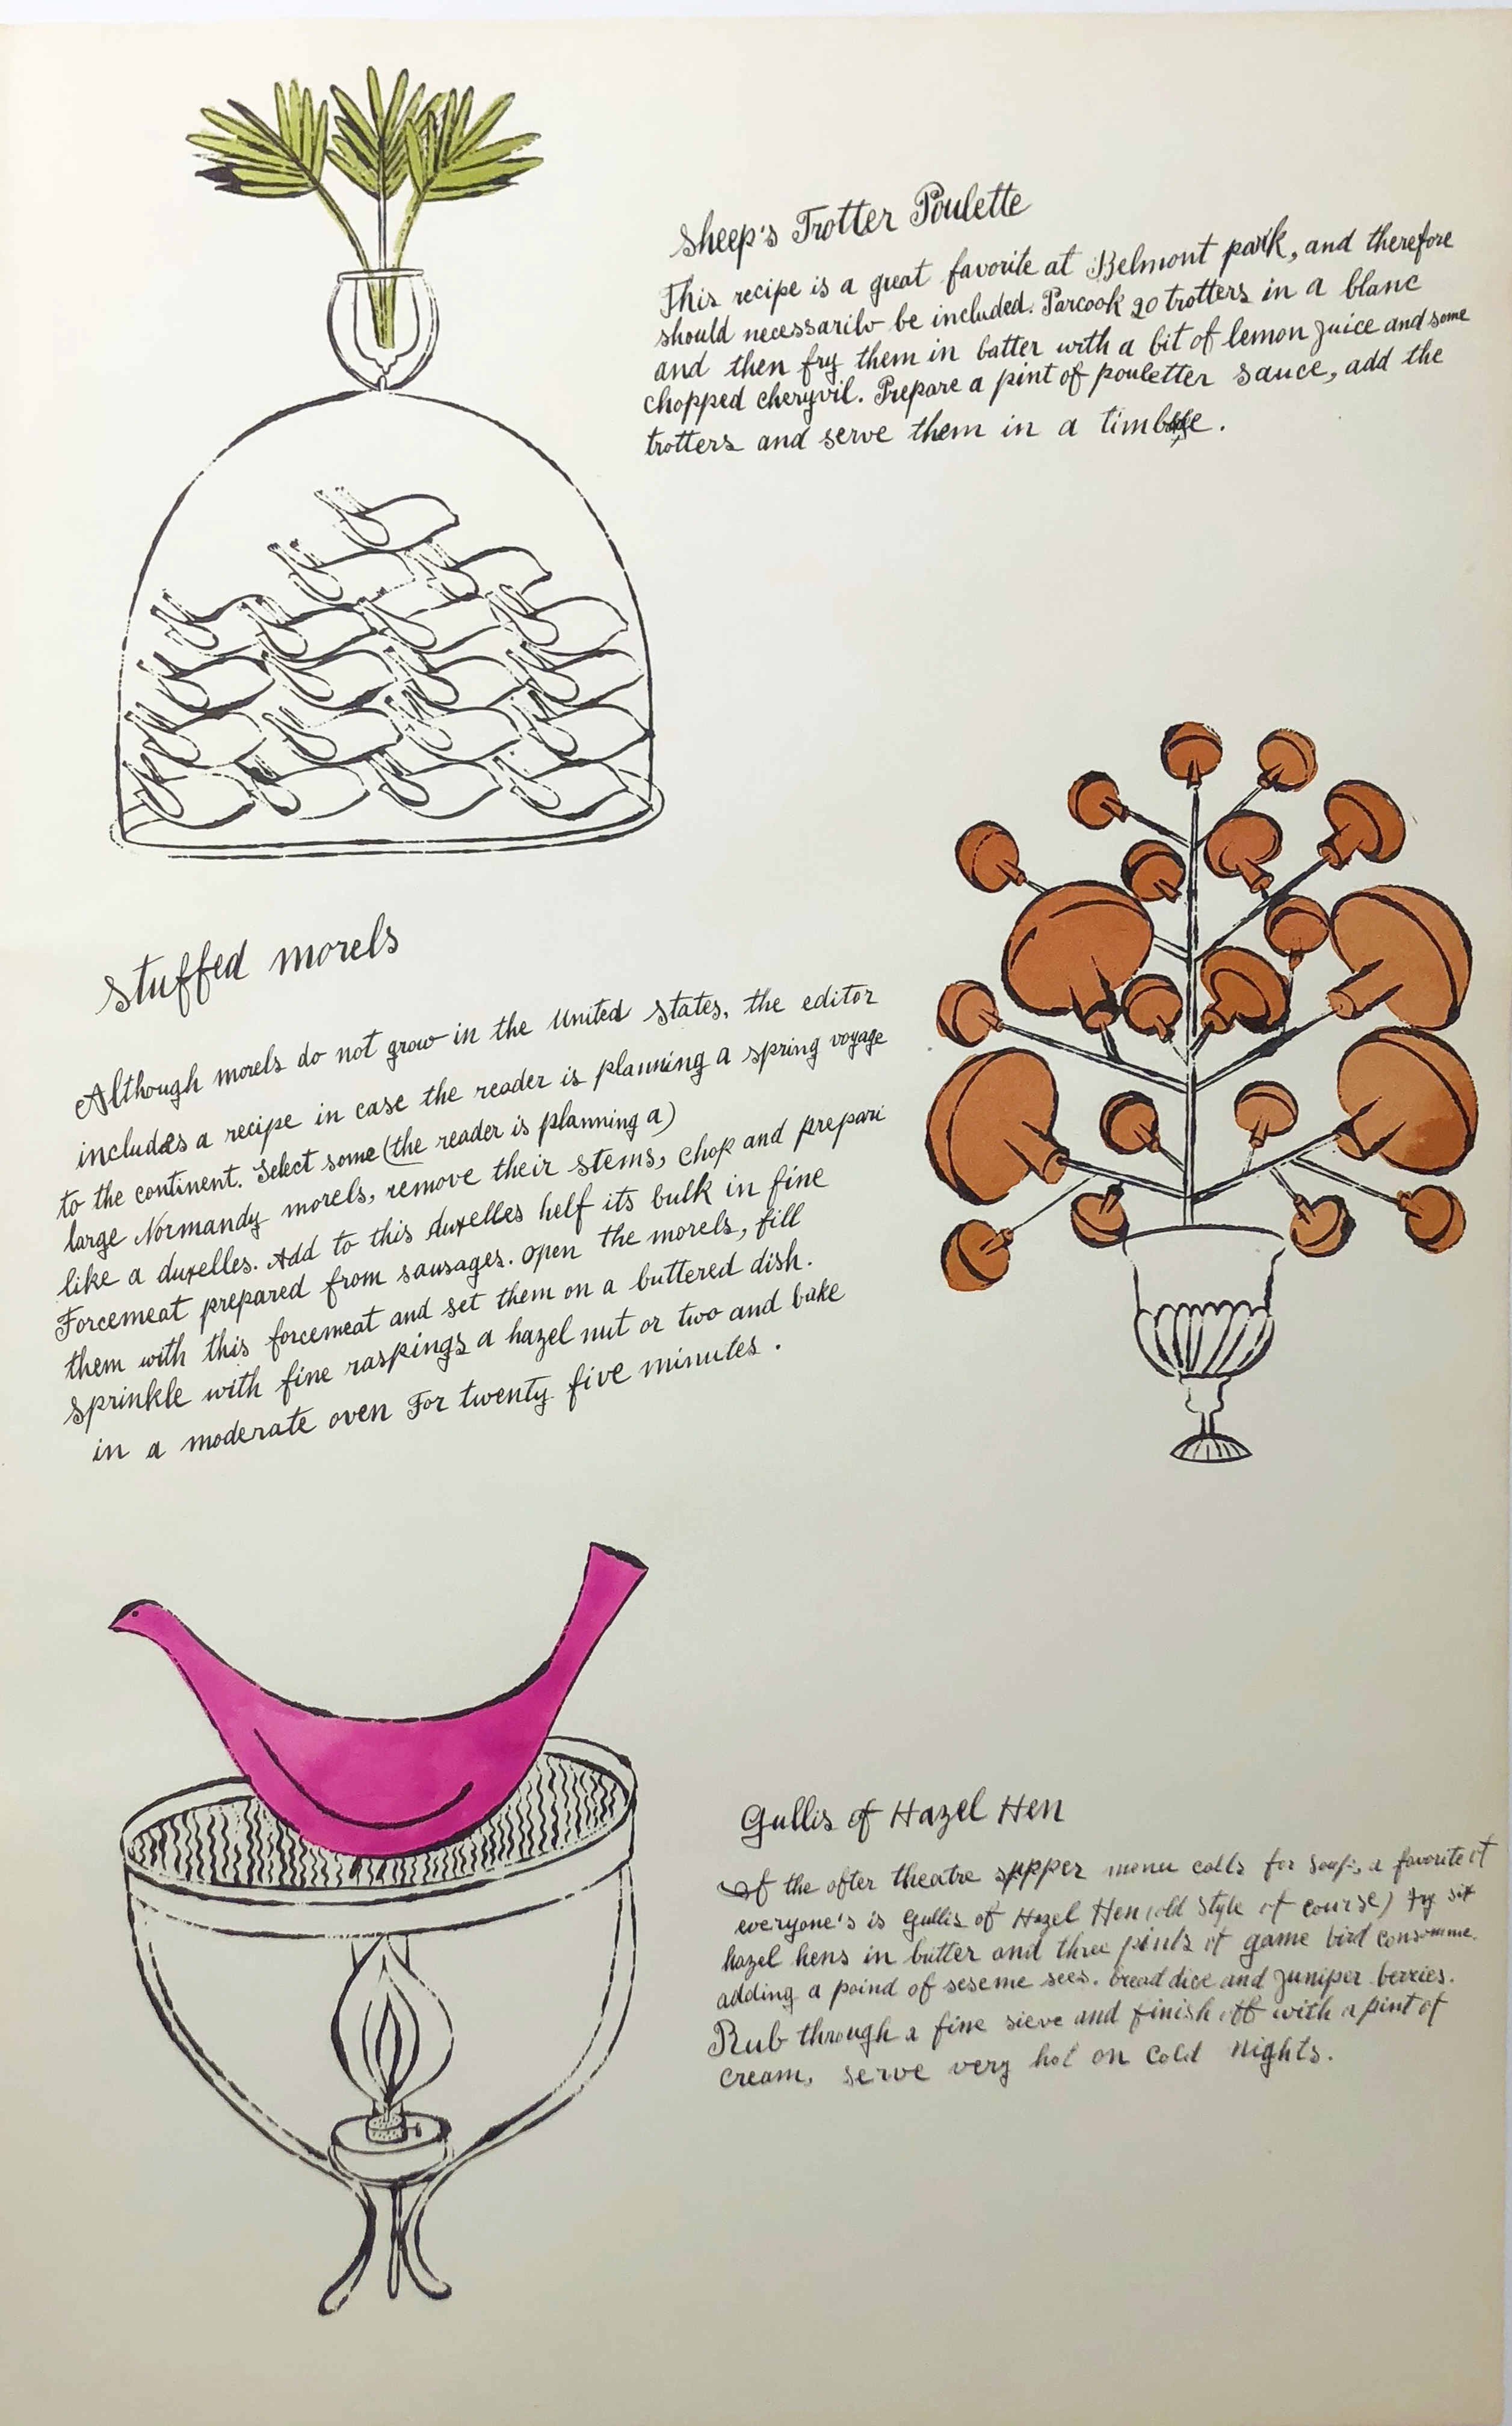 Sheep's Trotter Poulette
This recipe is a great favorite at Belmont park, and therefore
should necessarilv be included. Parcook 20 trotters in a blanc
and then fry them in batter with a bit of lemon juice and some
chopped cheryvil. Prepare a pint of pouletter sauce, add the
trotters and serve them in a
Stuffed morels
Although morels do not grow in the United States, the editor
includes a recipe in case the reader is planning a spring voyage
to the continent. Select some (the reader is planning a)
large Normandy morels, remove their stems, chop and prepari
like a duxelles. Add to this duxelles helf its bulk in fine
Forcemeat prepared from sausages. Open the morels, fill
them with this forcemeat and set them on a buttered dish.
sprinkle with fine raspings a hazel nut or two and bake
in a moderate oven For twenty five minutes.
Gullis of Hazel Hen
If the after theatre supper menu calls for soup, a favorite of
everyone's is Gullis of Hazel Hen (old style of course) fry six
hazel hens in butter and three pints of game bird consomme.
adding a poind of seseme sees. bread dice and juniper berries.
Rub through a fine sieve and finish off with a pint of
cream, serve very hot on cold nights.